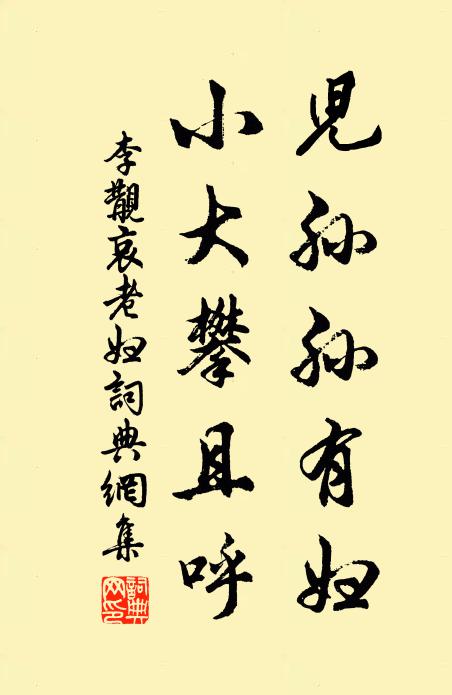 兒孫孫有婦
小大攀且呼
李覯哀老婦詞典網集
詞典
網印